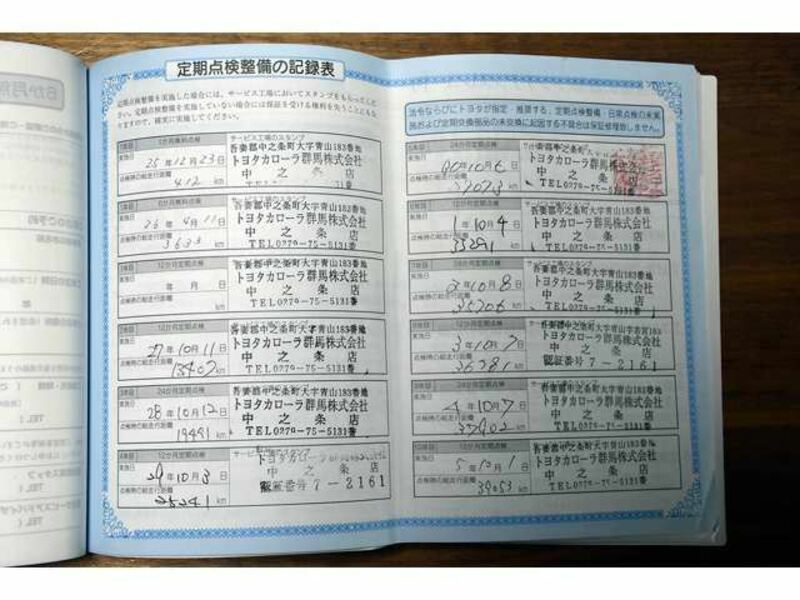 定期点検整備の記録表
定期点検整備を実施した場合には、サービス工場においてスタンプをもらってください。定期点検整備を実施していない場合には保証を受ける権利を失うことにもなりますので、確実に実施してください。
1か月無料点検
サービス工場のスタンプ
実施日
25年12月23日
点検時の総走行距離
412 km
吾妻郡中之条町大字青山183番地
トヨタカローラ群馬株式会社
中之条店
TEL0279-75-5131番
6か月無料点検
26年4月11日
点検時の総走行距離
3633 km
吾妻郡中之条町大字青山183番地
トヨタカローラ群馬株式会社
中之条店
TEL0279-75-5131番
12か月定期点検
年 月 日
点検時の総走行距離
km
吾妻郡中之条町大字青山183番地
トヨタカローラ群馬株式会社
中之条店
TEL0279-75-5131番
2年目
12か月定期点検
実施日
27年10月11日
点検時の総走行距離
13402 km
吾妻郡中之条町大字青山183番地
トヨタカローラ群馬株式会社
中之条店
TEL0279-75-5131番
3年目
24か月定期点検
実施日
28年10月12日
点検時の総走行距離
19491 km
吾妻郡中之条町大字青山183番地
トヨタカローラ群馬株式会社
中之条店
TEL0279-75-5131番
4年目
12か月定期点検
実施日
29年10月3日
点検時の総走行距離
25241 km
中之条店
認証番号7-2161
法令ならびにトヨタが指定・推奨する、定期点検整備・日常点検の未実施および定期交換部品の未交換に起因する不具合は保証修理致しません。
5年目
24か月定期点検
実施日
30年10月6日
点検時の総走行距離
吾妻郡中之条町大字青山183番地
トヨタカローラ群馬株式会社
中之条店
TEL0279-75-5131番
6年目
12か月定期点検
実施日
1年10月4日
点検時の総走行距離
33291 km
吾妻郡中之条町大字青山183番地
トヨタカローラ群馬株式会社
中之条店
TEL0279-75-5131番
7年目
24か月定期点検
実施日
2年10月8日
点検時の総走行距離
35206 km
吾妻郡中之条町大字青山183番地
トヨタカローラ群馬株式会社
中之条店
TEL0279-75-5131番
12か月定期点検
実施日
3年10月7日
点検時の総走行距離
36281 km
トヨタカローラ群馬株式会社
中之条店
認証番号7-2161
24か月定期点検
実施日
4年10月7日
点検時の総走行距離
37902 km
吾妻郡中之条町大字青山183番地
トヨタカローラ群馬株式会社
中之条店
TEL0279-75-5131番
10年目
12か月定期点検
実施日
5年12月1日
点検時の総走行距離
39053 km
吾妻郡中之条町大字青山183番地
トヨタカローラ群馬株式会社
中之条店
TEL0279-75-5131番